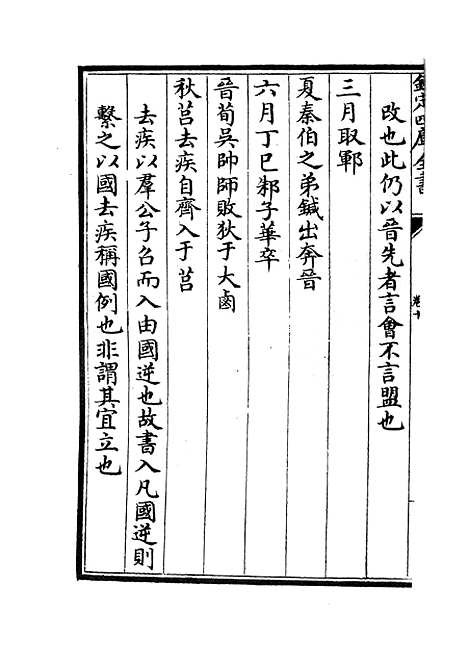 欽定四庫全書
卷十
改也此仍以晉先者言會不言盟也
三月取鄆
夏秦伯之弟鍼出奔晉
六月丁巳邾子華卒
晉荀吳帥師敗狄于大鹵
秋莒去疾自齊入于莒
去疾以羣公子召而入由國逆也故書入凡國逆則
繫之以國去疾稱國例也非謂其宜立也